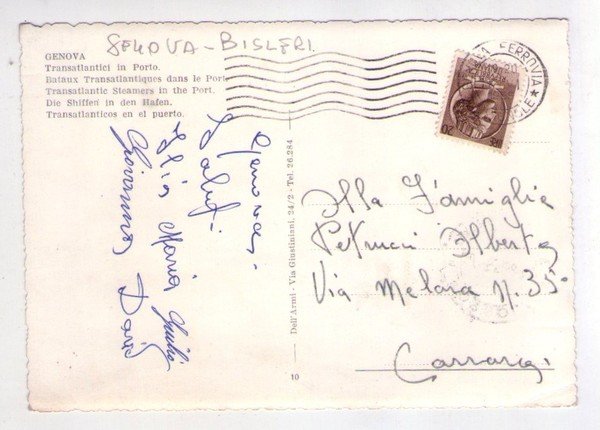 GENOVA - BISLERI
GENOVA
Transatlantici in Porto.
Bataux Transatlantiques dans le Port.
Transatlantic Steamers in the Port.
Die Shiffen in den Hafen.
Transatlanticos en el puerto.
Genova,
Saluti
Maria Giulio
Giovanna David
Dell'Armi - Via Giustiniani, 24/2 - Tel. 26.284
10
FERROVIA
20
Alla Famiglia
Petrucci Alberto
Via Melara N. 35
Carrara